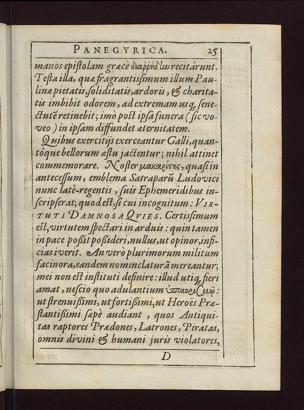 PANEGYRICA. 25
manos epistolam græcè recitârunt.
Testa illa, quæ fragrantissimum illum Pau-
linæ pietatis, soliditatis, ardoris, & charita-
tis imbibit odorem, ad extremam usq, sene-
ctutẽ retinebit; imò post ipsa funera (sic vo-
veo) in ipsam diffundet æternitatem.
Quibus exercitijs exerceantur Galli, quan-
tôque bellorum æstu jactentur; nihil attinet
commemorare. Noster quasi in
antecessum, emblema Satraparũ Ludovici
nunc latè-regentis, suis Ephemeridibus in-
scripserat; quod est, si cui incognitum: VIR-
TUTI DAMNOSA QUIES. Certissimum
est, virtutem spectari in arduis: quin tamen
in pace possit possideri, nullus, ut opinor, infi-
cias iverit. An verò plurimorum militum
facinora, eandem nomenclaturã mereantur;
mei non est instituti definire: illud utiq, fieri
amat, nescio quo adulantium
ut strenuissimi, ut fortissimi, ut Heroës Præ-
stantissimi sæpè audiant, quos Antiqui-
tas raptores Prædones, Latrones, Piratas,
omnis divini & humani juris violatores,
D